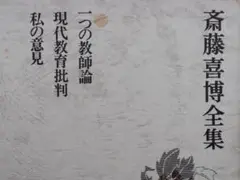 斎藤喜博全集
一つの教師論
現代教育批判
私の意見